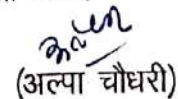 (अल्पा चौधरी)